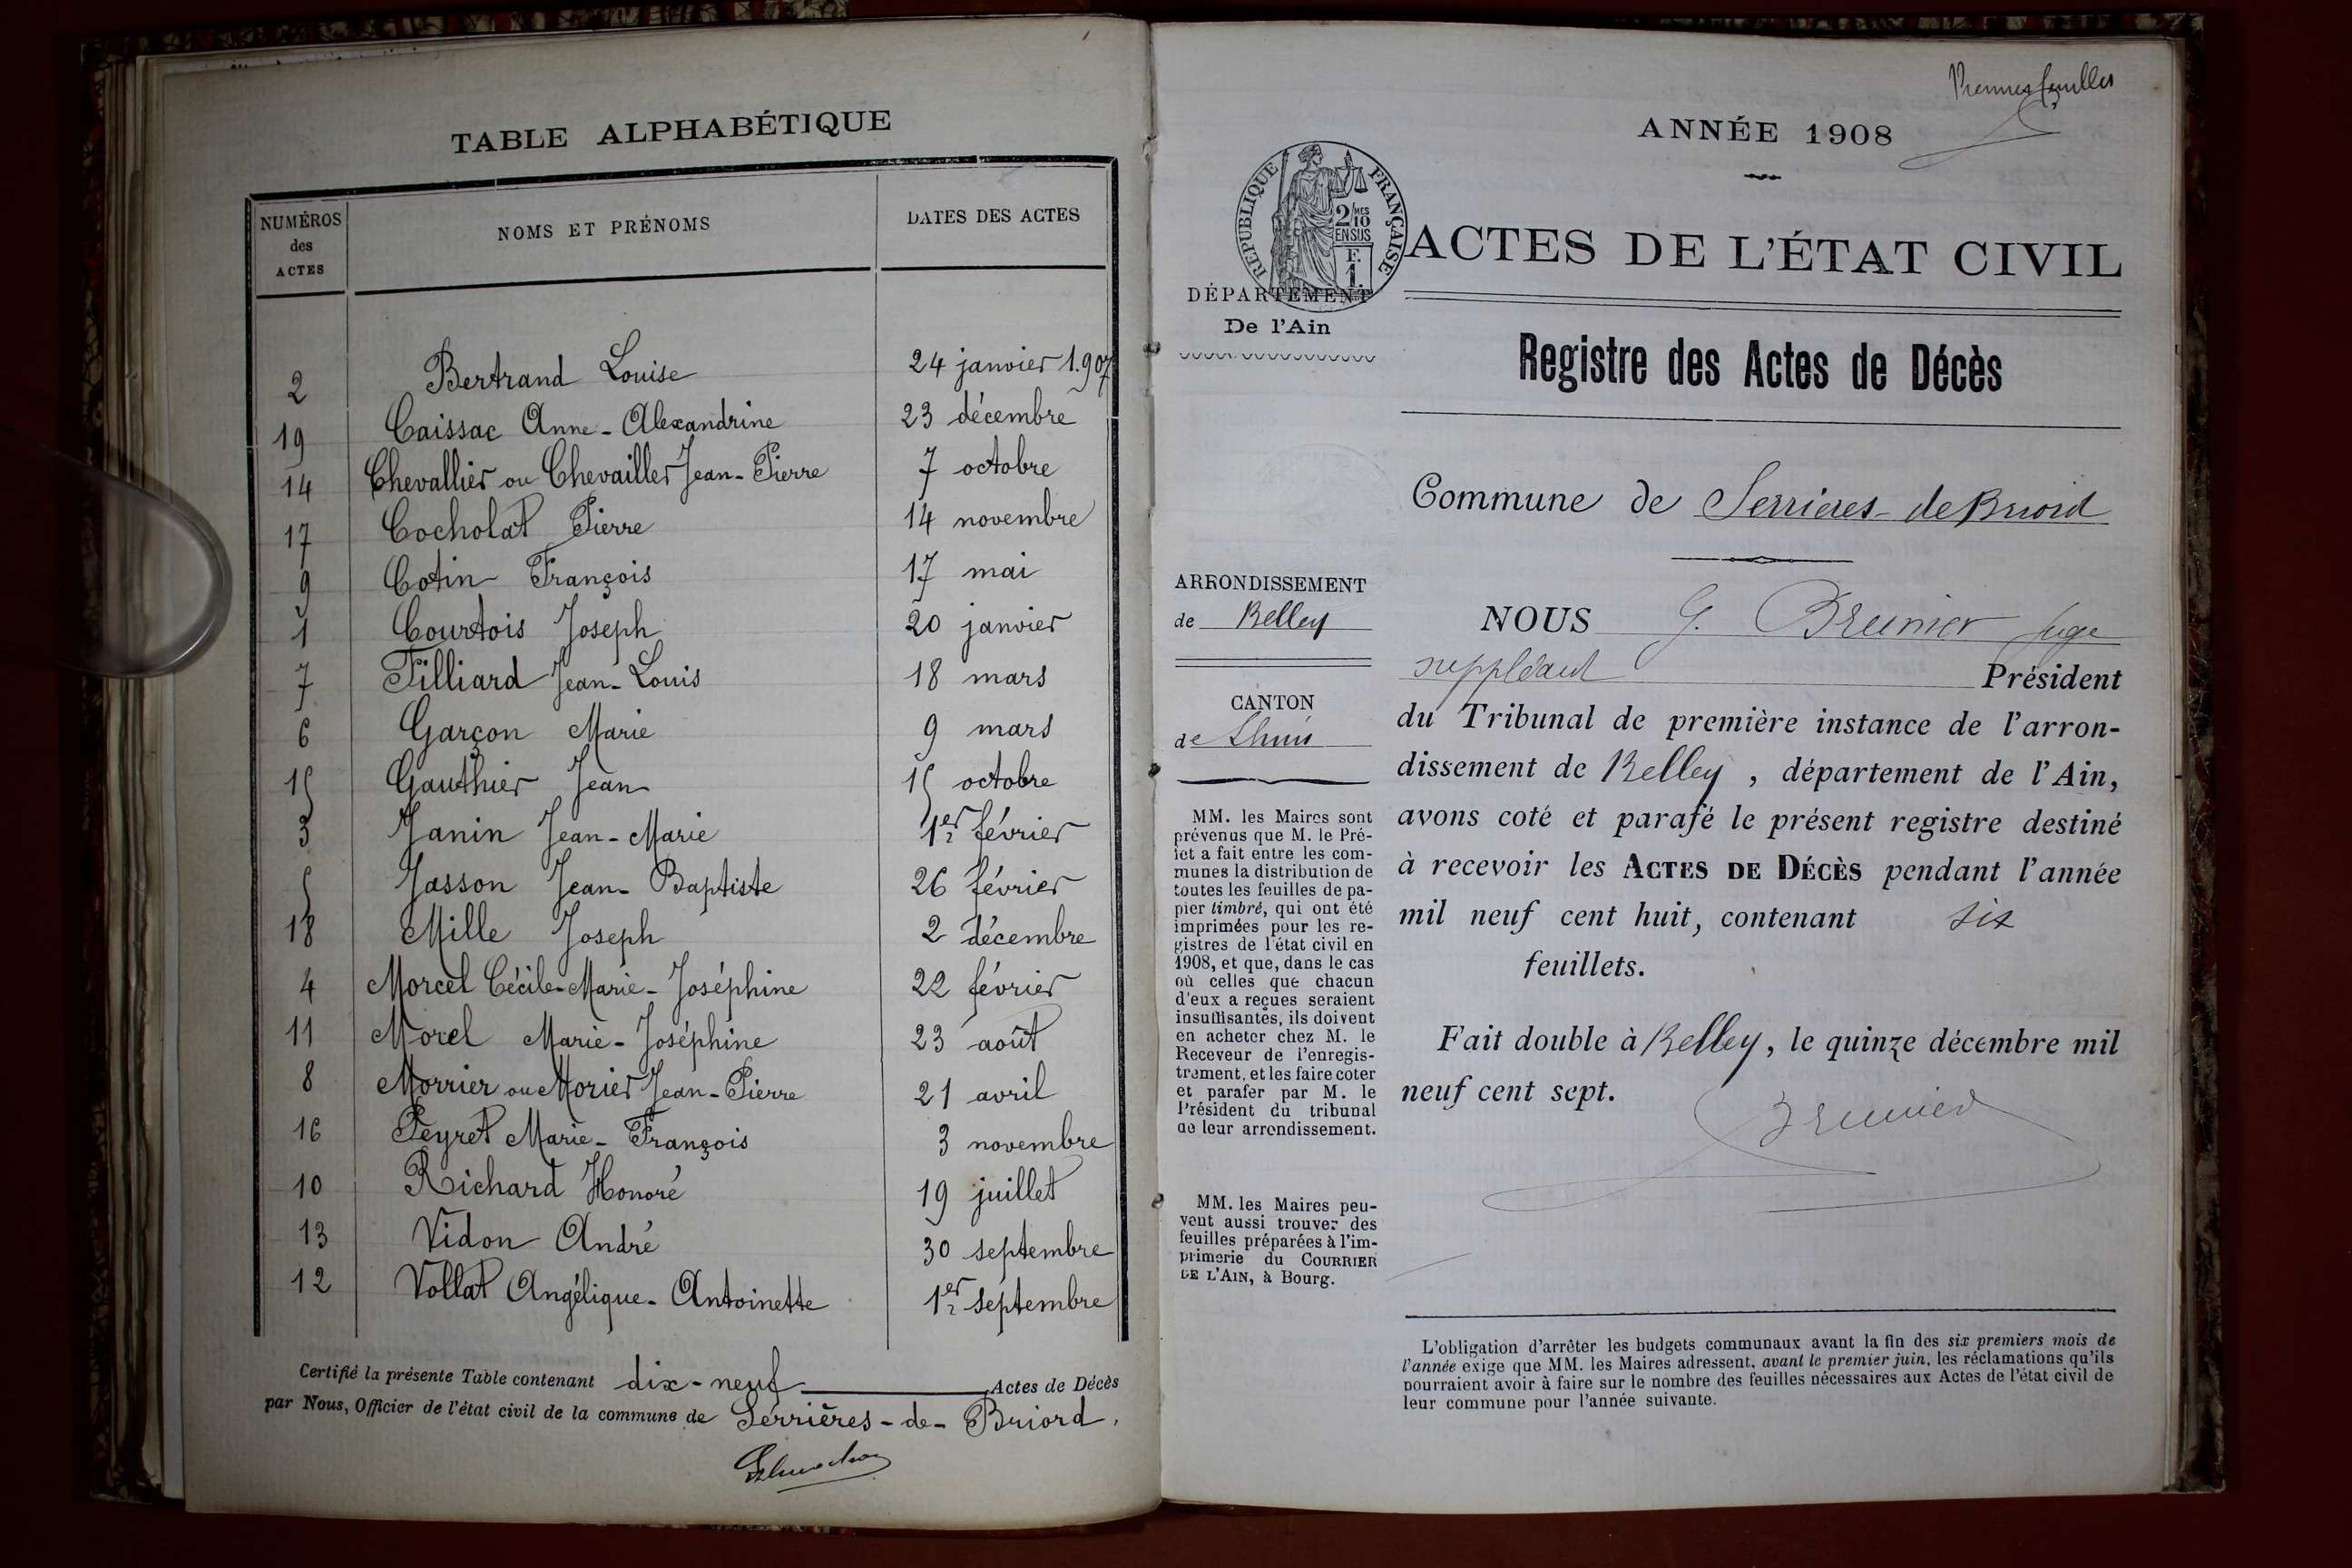 TABLE ALPHABÉTIQUE
NUMÉROS des ACTES
NOMS ET PRÉNOMS
DATES DES ACTES
2 Bertrand Louise 24 janvier 1.907
19 Caissac Anne-Alexandrine 23 décembre
14 Chevallier ou Chevailler Jean-Pierre 7 octobre
17 Cocholat Pierre 14 novembre
9 Cotin François 17 mai
1 Courtois Joseph 20 janvier
7 Filliard Jean-Louis 18 mars
6 Garçon Marie 9 mars
15 Gauthier Jean 15 octobre
3 Janin Jean-Marie 1er février
5 Jasson Jean-Baptiste 26 février
18 Mille Joseph 2 décembre
4 Morcel Cécile-Marie-Joséphine 22 février
11 Morel Marie-Joséphine 23 août
8 Morrier ou Morier Jean-Pierre 21 avril
16 Peyret Marie-François 3 novembre
10 Richard Honoré 19 juillet
13 Vidon André 30 septembre
12 Vollat Angélique-Antoinette 1er septembre
Certifié la présente Table contenant dix-neuf Actes de Décès
par Nous, Officier de l'état civil de la commune de Serrières-de-Briord.
ANNÉE 1908
RÉPUBLIQUE FRANÇAISE
2/10 MES
EN SUS
F.
1.
ACTES DE L'ÉTAT CIVIL
DÉPARTEMENT
De l'Ain
Registre des Actes de Décès
Commune de Serrieres-de Briord
ARRONDISSEMENT
de Belley
CANTON
de Lhuis
MM. les Maires sont
prévenus que M. le Pré-
fet a fait entre les com-
munes la distribution de
toutes les feuilles de pa-
pier timbré, qui ont été
imprimées pour les re-
gistres de l'état civil en
1908, et que, dans le cas
où celles que chacun
d'eux a reçues seraient
insuffisantes, ils doivent
en acheter chez M. le
Receveur de l'enregis-
trement, et les faire coter
et parafer par M. le
Président du tribunal
de leur arrondissement.
MM. les Maires peu-
vent aussi trouver des
feuilles préparées à l'im-
primerie du COURRIER
DE L'AIN, à Bourg.
NOUS G. Brunier juge
suppléant Président
du Tribunal de première instance de l'arron-
dissement de Belley, département de l'Ain,
avons coté et parafé le présent registre destiné
à recevoir les ACTES DE DÉCÈS pendant l'année
mil neuf cent huit, contenant six
feuillets.
Fait double à Belley, le quinze décembre mil
neuf cent sept.
Brunier
L'obligation d'arrêter les budgets communaux avant la fin des six premiers mois de
l'année exige que MM. les Maires adressent, avant le premier juin, les réclamations qu'ils
pourraient avoir à faire sur le nombre des feuilles nécessaires aux Actes de l'état civil de
leur commune pour l'année suivante.